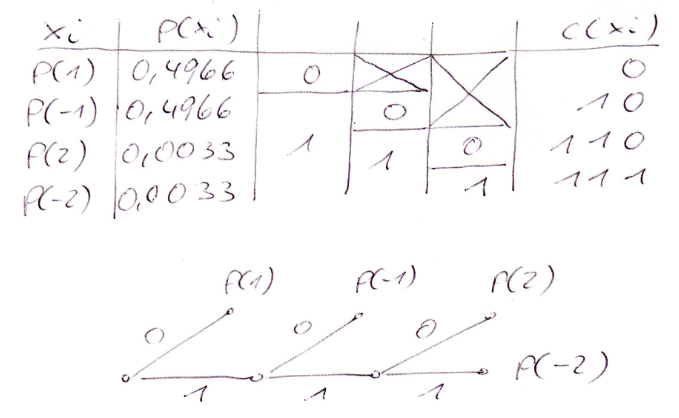 xi P(xi) C(xi)
P(1) 0,4966 0 0
P(-1) 0,4966 0 10
P(2) 0,0033 1 1 0 110
P(-2) 0,0033 1 111
P(1) P(-1) P(2)
0 0 0
P(-2)
1 1 1